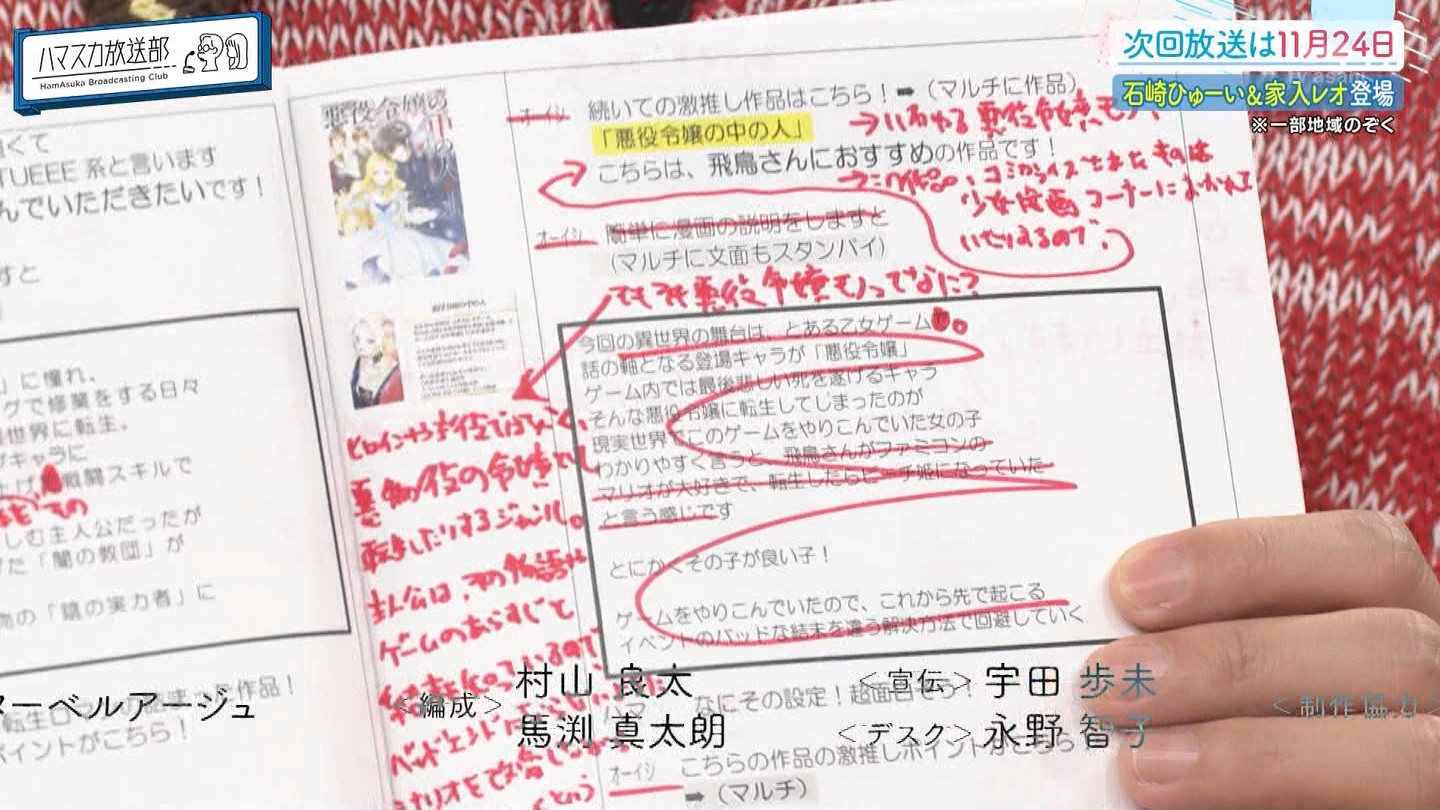 ハマスカ放送部
HamAsuka Broadcasting Club
次回放送は11月24日
石崎ひゅーい&家入レオ登場
※一部地域のぞく
TUEEE 系と言います
んでいただきたいです！
すと
」に憧れ、
グで修業をする日々
世界に転生。
キャラに
戦闘スキルで
その
しむ主人公だったが
た「闇の教団」が
物の「陰の実力者」に
悪役令嬢の中の人
オーイシ
続いての激推し作品はこちら！➡（マルチに作品）
「悪役令嬢の中の人」
→いわゆる悪役令嬢モノ
こちらは、飛鳥さんにおすすめの作品です！
→この作品、コミカライズであるものは
少女漫画コーナーにおかれて
いたりするので、
オーイシ
簡単に漫画の説明をしますと
（マルチに文面もスタンバイ）
そもそも悪役令嬢モノってなに？
今回の異世界の舞台は、とある乙女ゲーム
話の軸となる登場キャラが「悪役令嬢」
ゲーム内では最後悲しい死を遂げるキャラ
そんな悪役令嬢に転生してしまったのが
現実世界でこのゲームをやりこんでいた女の子
わかりやすく言うと、飛鳥さんがファミコンの
マリオが大好きで、転生したらピーチ姫になっていた
と言う感じです
とにかくその子が良い子！
ゲームをやりこんでいたので、これから先で起こる
イベントのバッドな結末を違う解決方法で回避していく
ヒロインや主役ではなく、
悪役の令嬢に
転生したりするジャンル。
主人公は、その物語や
ゲームのあらすじと
結末を知っているので
バッドエンドに
シナリオを改変
という
なにその設定！超面白そう！
オーイシ
こちらの作品の激推しポイントがこちら
➡（マルチ）
ポイントがこちら！
ーベルアージュ
＜編成＞
村山 良太
馬渕 真太朗
＜宣伝＞ 宇田 歩未
＜デスク＞ 永野 智子
＜制作協力＞